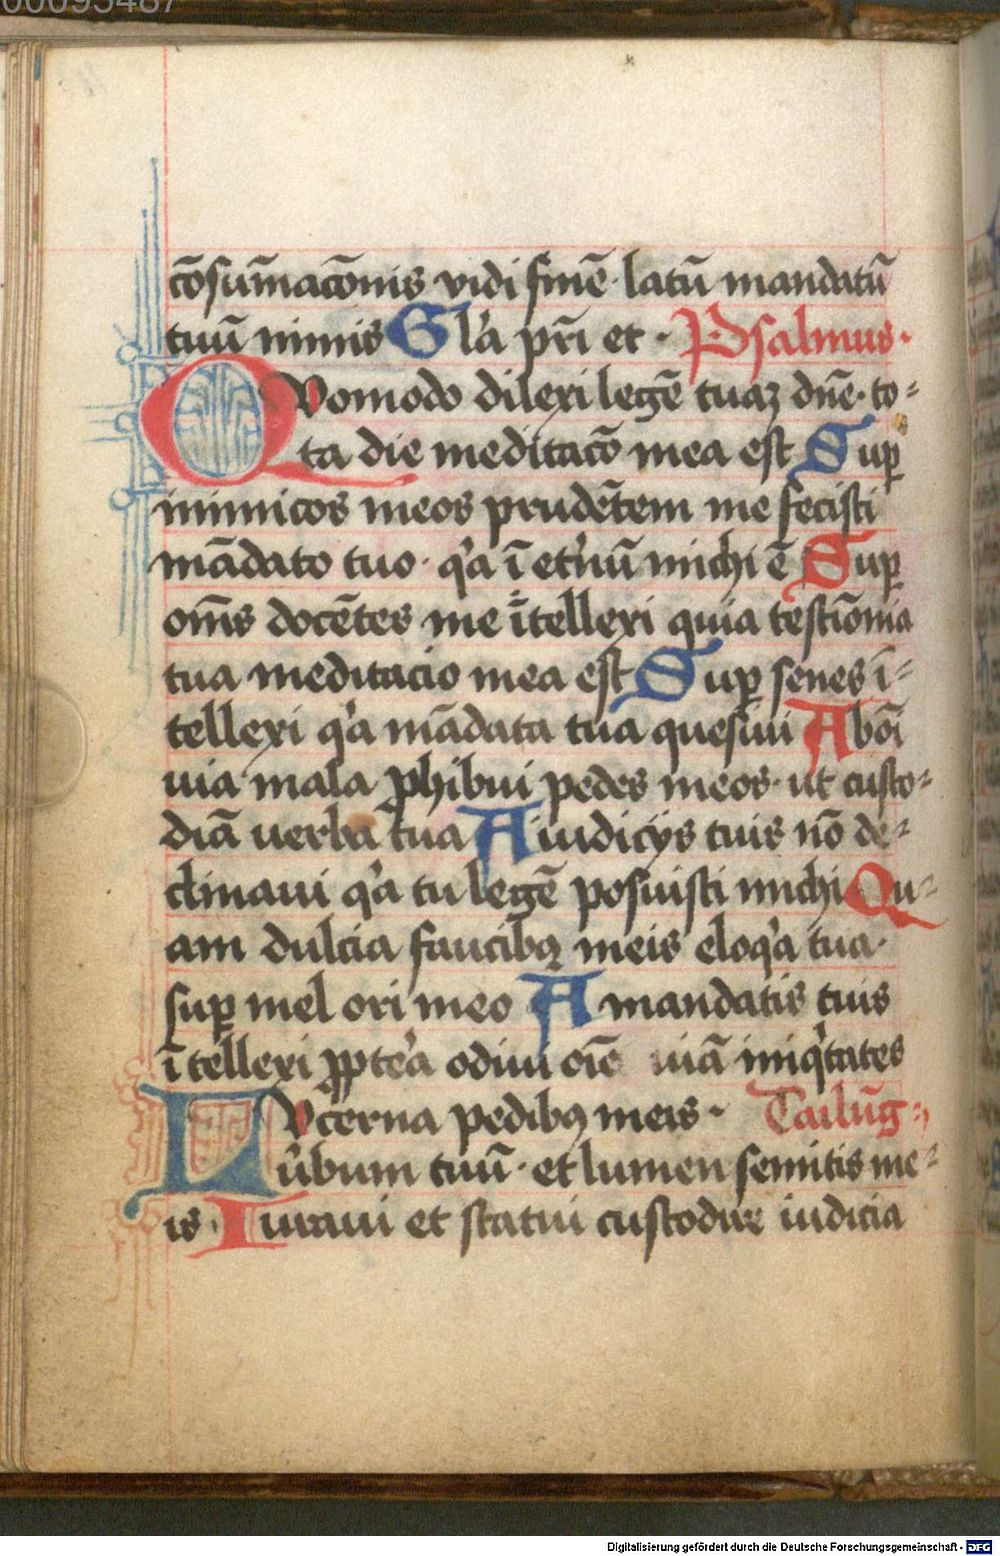 00095487
cōsum̄acōnis vidi finē · latū mandatū
tuū nimis Gl'a pr̄i et · Psalmus ·
QVomodo dilexi legē tuaꝫ dn̄e · to-
ta die meditacō mea est Suꝑ
inimicos meos prudētem me fecisti
mādato tuo · q'a ī et'nū michi ē Suꝑ
om̄s docētes me ītellexi quia testiōnia
tua meditacio mea est Suꝑ senes ī-
tellexi q'a mādata tua quesiui Ab oī
uia mala ꝓhibui pedes meos · ut custo-
diā uerba tua A iudicijs tuis nō de-
clinaui q'a tu legē posuisti michi Qu-
am dulcia faucibꝫ meis eloq'a tua ·
suꝑ mel ori meo A mandatis tuis
ītellexi ꝓpte'a odiui oīē uiā iniq'tates
LVcerna pedibꝰ meis ·
ūbum tuū · et lumen semitis me-
is · Iuraui et statui custodire iudicia
Digitalisierung gefördert durch die Deutsche Forschungsgemeinschaft - DFG